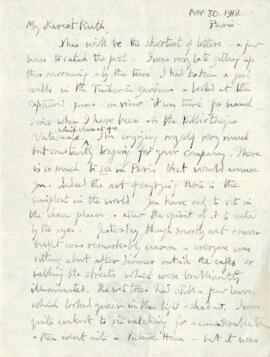 Nov. 30. 1918
Paris.
My dearest Ruth
This will be the shortest of letters - a few
lines to catch the post. I was very late getting up
this morning & by the time I had taken a
walk in the Tuileries gardens - looked at the
captured guns on view it was time for lunch
since when I have been in the Bibliothèque
Nationale, which closes at 4. I'm enjoying myself very much
but constantly longing for your company. There
is so much to see in Paris that would amuse
you. Indeed the art of enjoying Paris is the
simplest in the world. You have only to sit in
the chosen places & allow the spirit of it to enter
by the eyes. Yesterday though mostly wet & never
bright was remarkably warm - everyone was
sitting about after dinner outside the cafés or
walking the streets which were brilliantly
illuminated. The wet trees had still a few leaves
which looked queer in the light & shadow. I was
quite content to sit watching for a considerable time
& then went into a Picture House - but it was